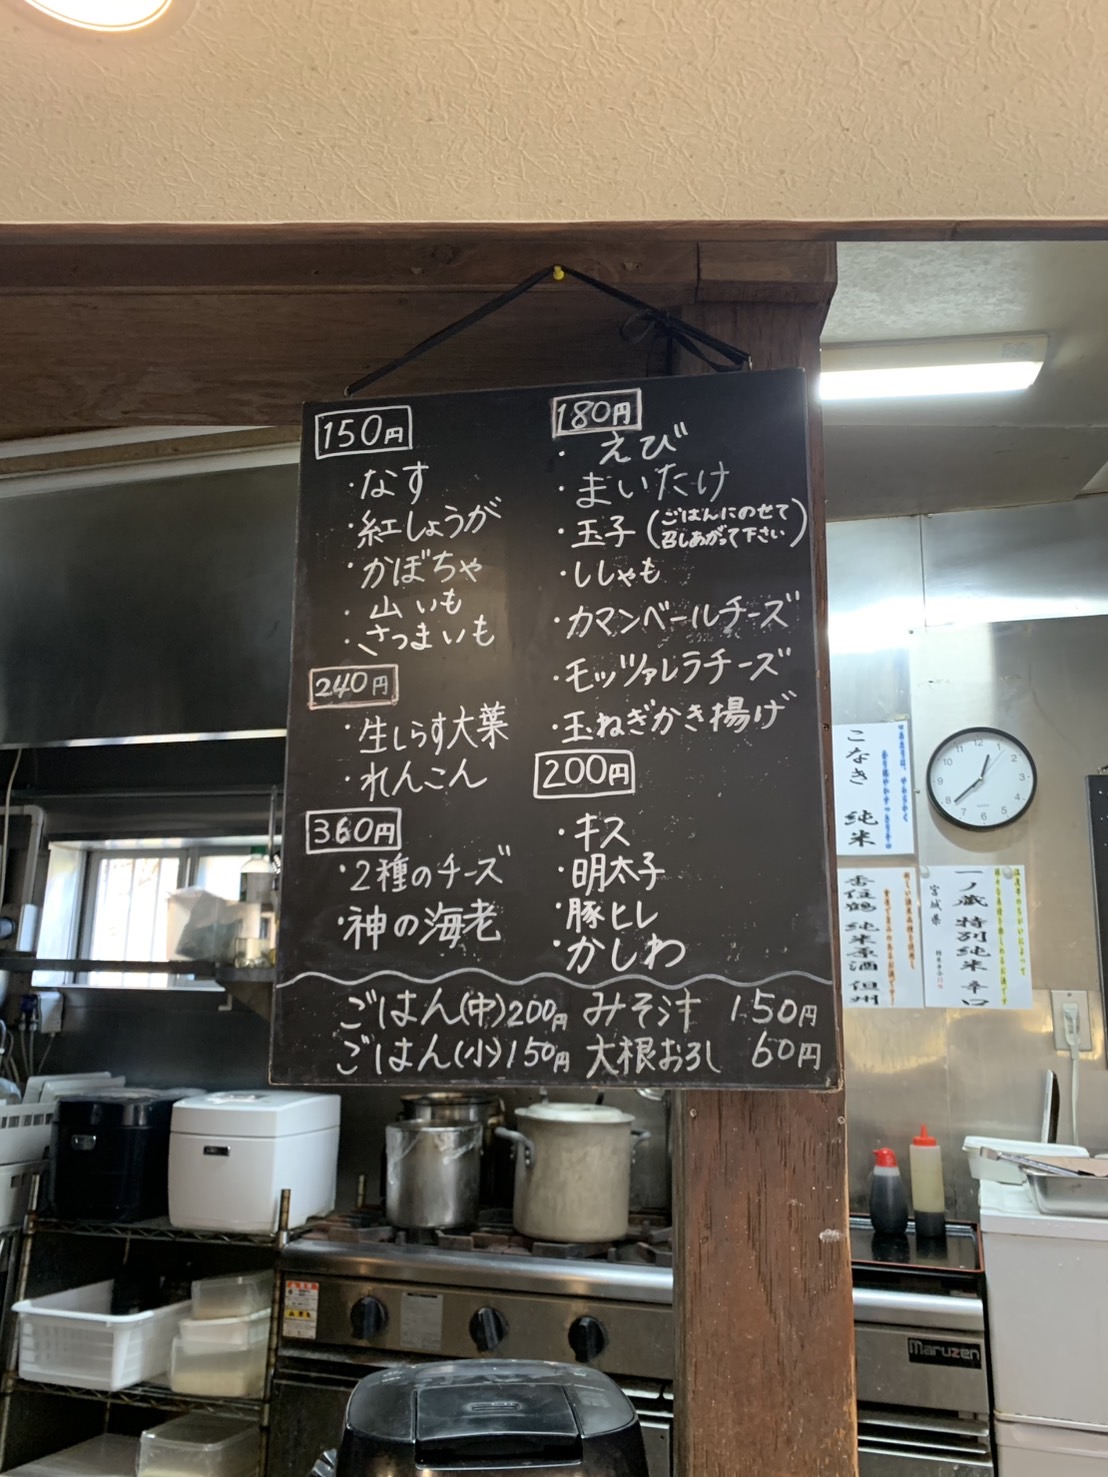 150円
・なす
・紅しょうが
・かぼちゃ
・山いも
・さつまいも
240円
・生しらす大葉
・れんこん
360円
・2種のチーズ
・神の海老
180円
・えび
・まいたけ
・玉子（ごはんにのせて
召しあがって下さい）
・ししゃも
・カマンベールチーズ
・モッツァレラチーズ
・玉ねぎかき揚げ
200円
・キス
・明太子
・豚ヒレ
・かしわ
ごはん(中)200円 みそ汁 150円
ごはん(小)150円 大根おろし 60円
こなき 純米
香住鶴 純米原酒 但州
一ノ蔵 特別純米 辛口
宮城県
12
1
2
3
4
5
6
7
8
9
10
11
Maruzen